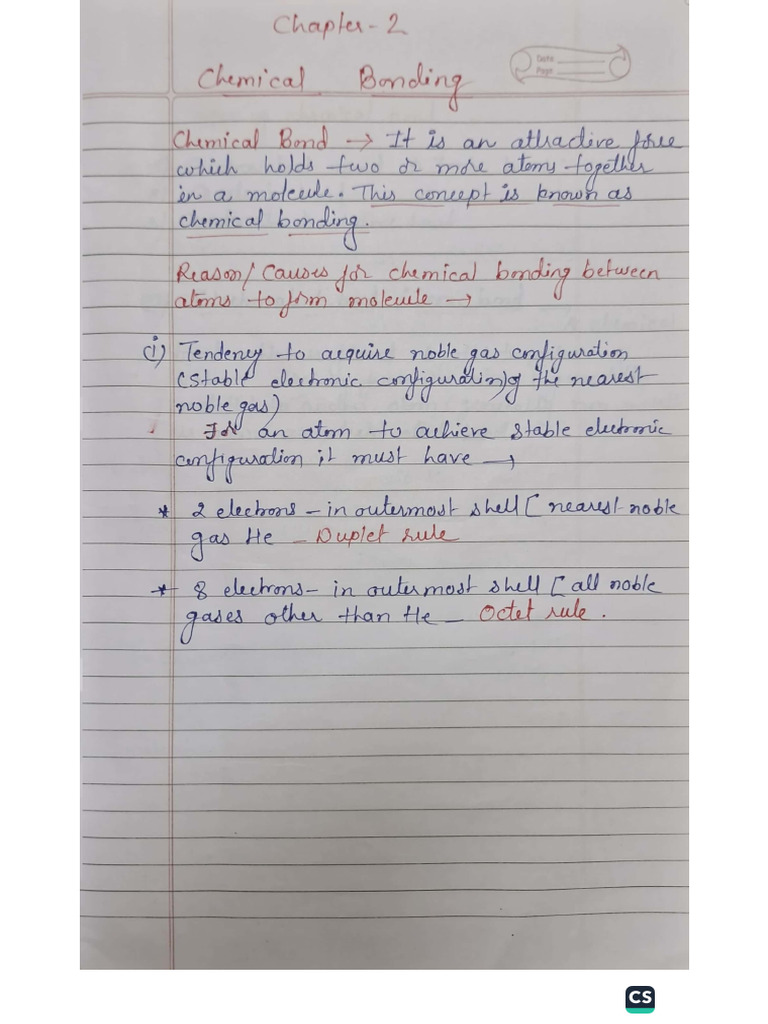 Chapter-2
Date
Page
Chemical Bonding
Chemical Bond → It is an attractive force
which holds two or more atoms together
in a molecule. This concept is known as
chemical bonding.
Reason/Causes for chemical bonding between
atoms to form molecule →
(i) Tendency to acquire noble gas configuration
(Stable electronic configuration) of the nearest
noble gas)
For an atom to achieve stable electronic
configuration it must have →
* 2 electrons - in outermost shell [ nearest noble
gas He - Duplet rule
* 8 electrons - in outermost shell [ all noble
gases other than He - Octet rule.
CS